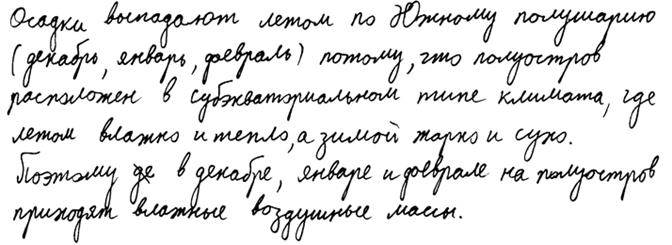 Осадки выпадают летом по Южному полушарию
(декабрь, январь, февраль) потому, что полуостров
расположен в субэкваториальном типе климата, где
летом влажно и тепло, а зимой жарко и сухо.
Поэтому де в декабре, январе и феврале на полуостров
приходят влажные воздушные массы.